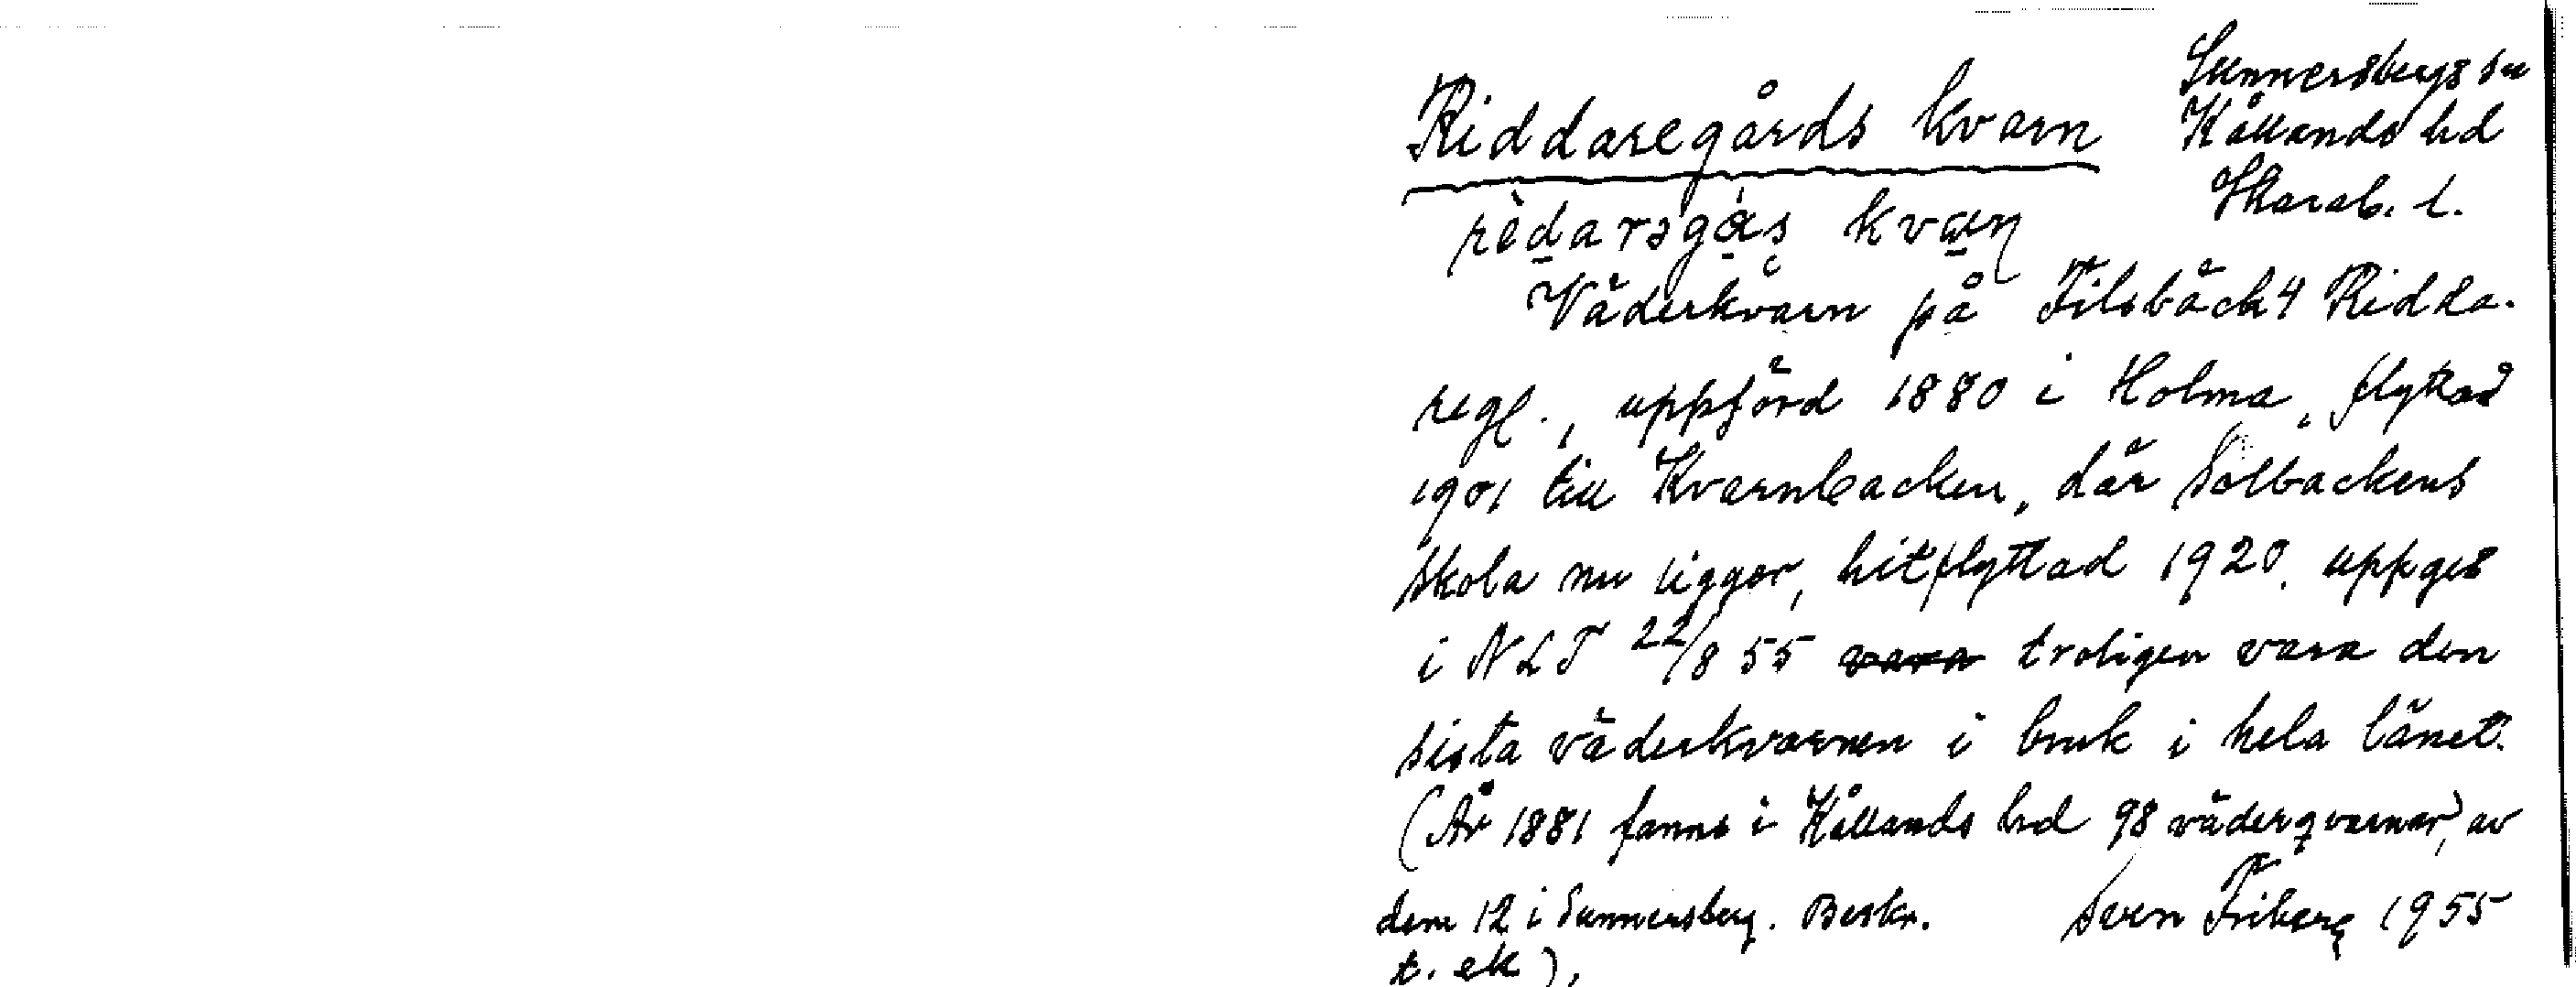 Riddaregårds kvarn
Sunnersbergs sn
Kållands hd
Skarab. l.
rèdarəgás kván
Väderkvarn på Filsbäck 4 Ridda-
regl., uppförd 1880 i Holma, flyttad
1901 till Kvarnbacken, där Solbackens
skola nu ligger, hitflyttad 1920, uppges
i NLT 22/8 55 vara troligen vara den
sista väderkvarnen i bruk i hela länet.
(År 1881 fanns i Kållands hd 98 väderqvarnar, av
dem 12 i Sunnersberg. Beskr.
t. ek),
Sven Friberg 1955